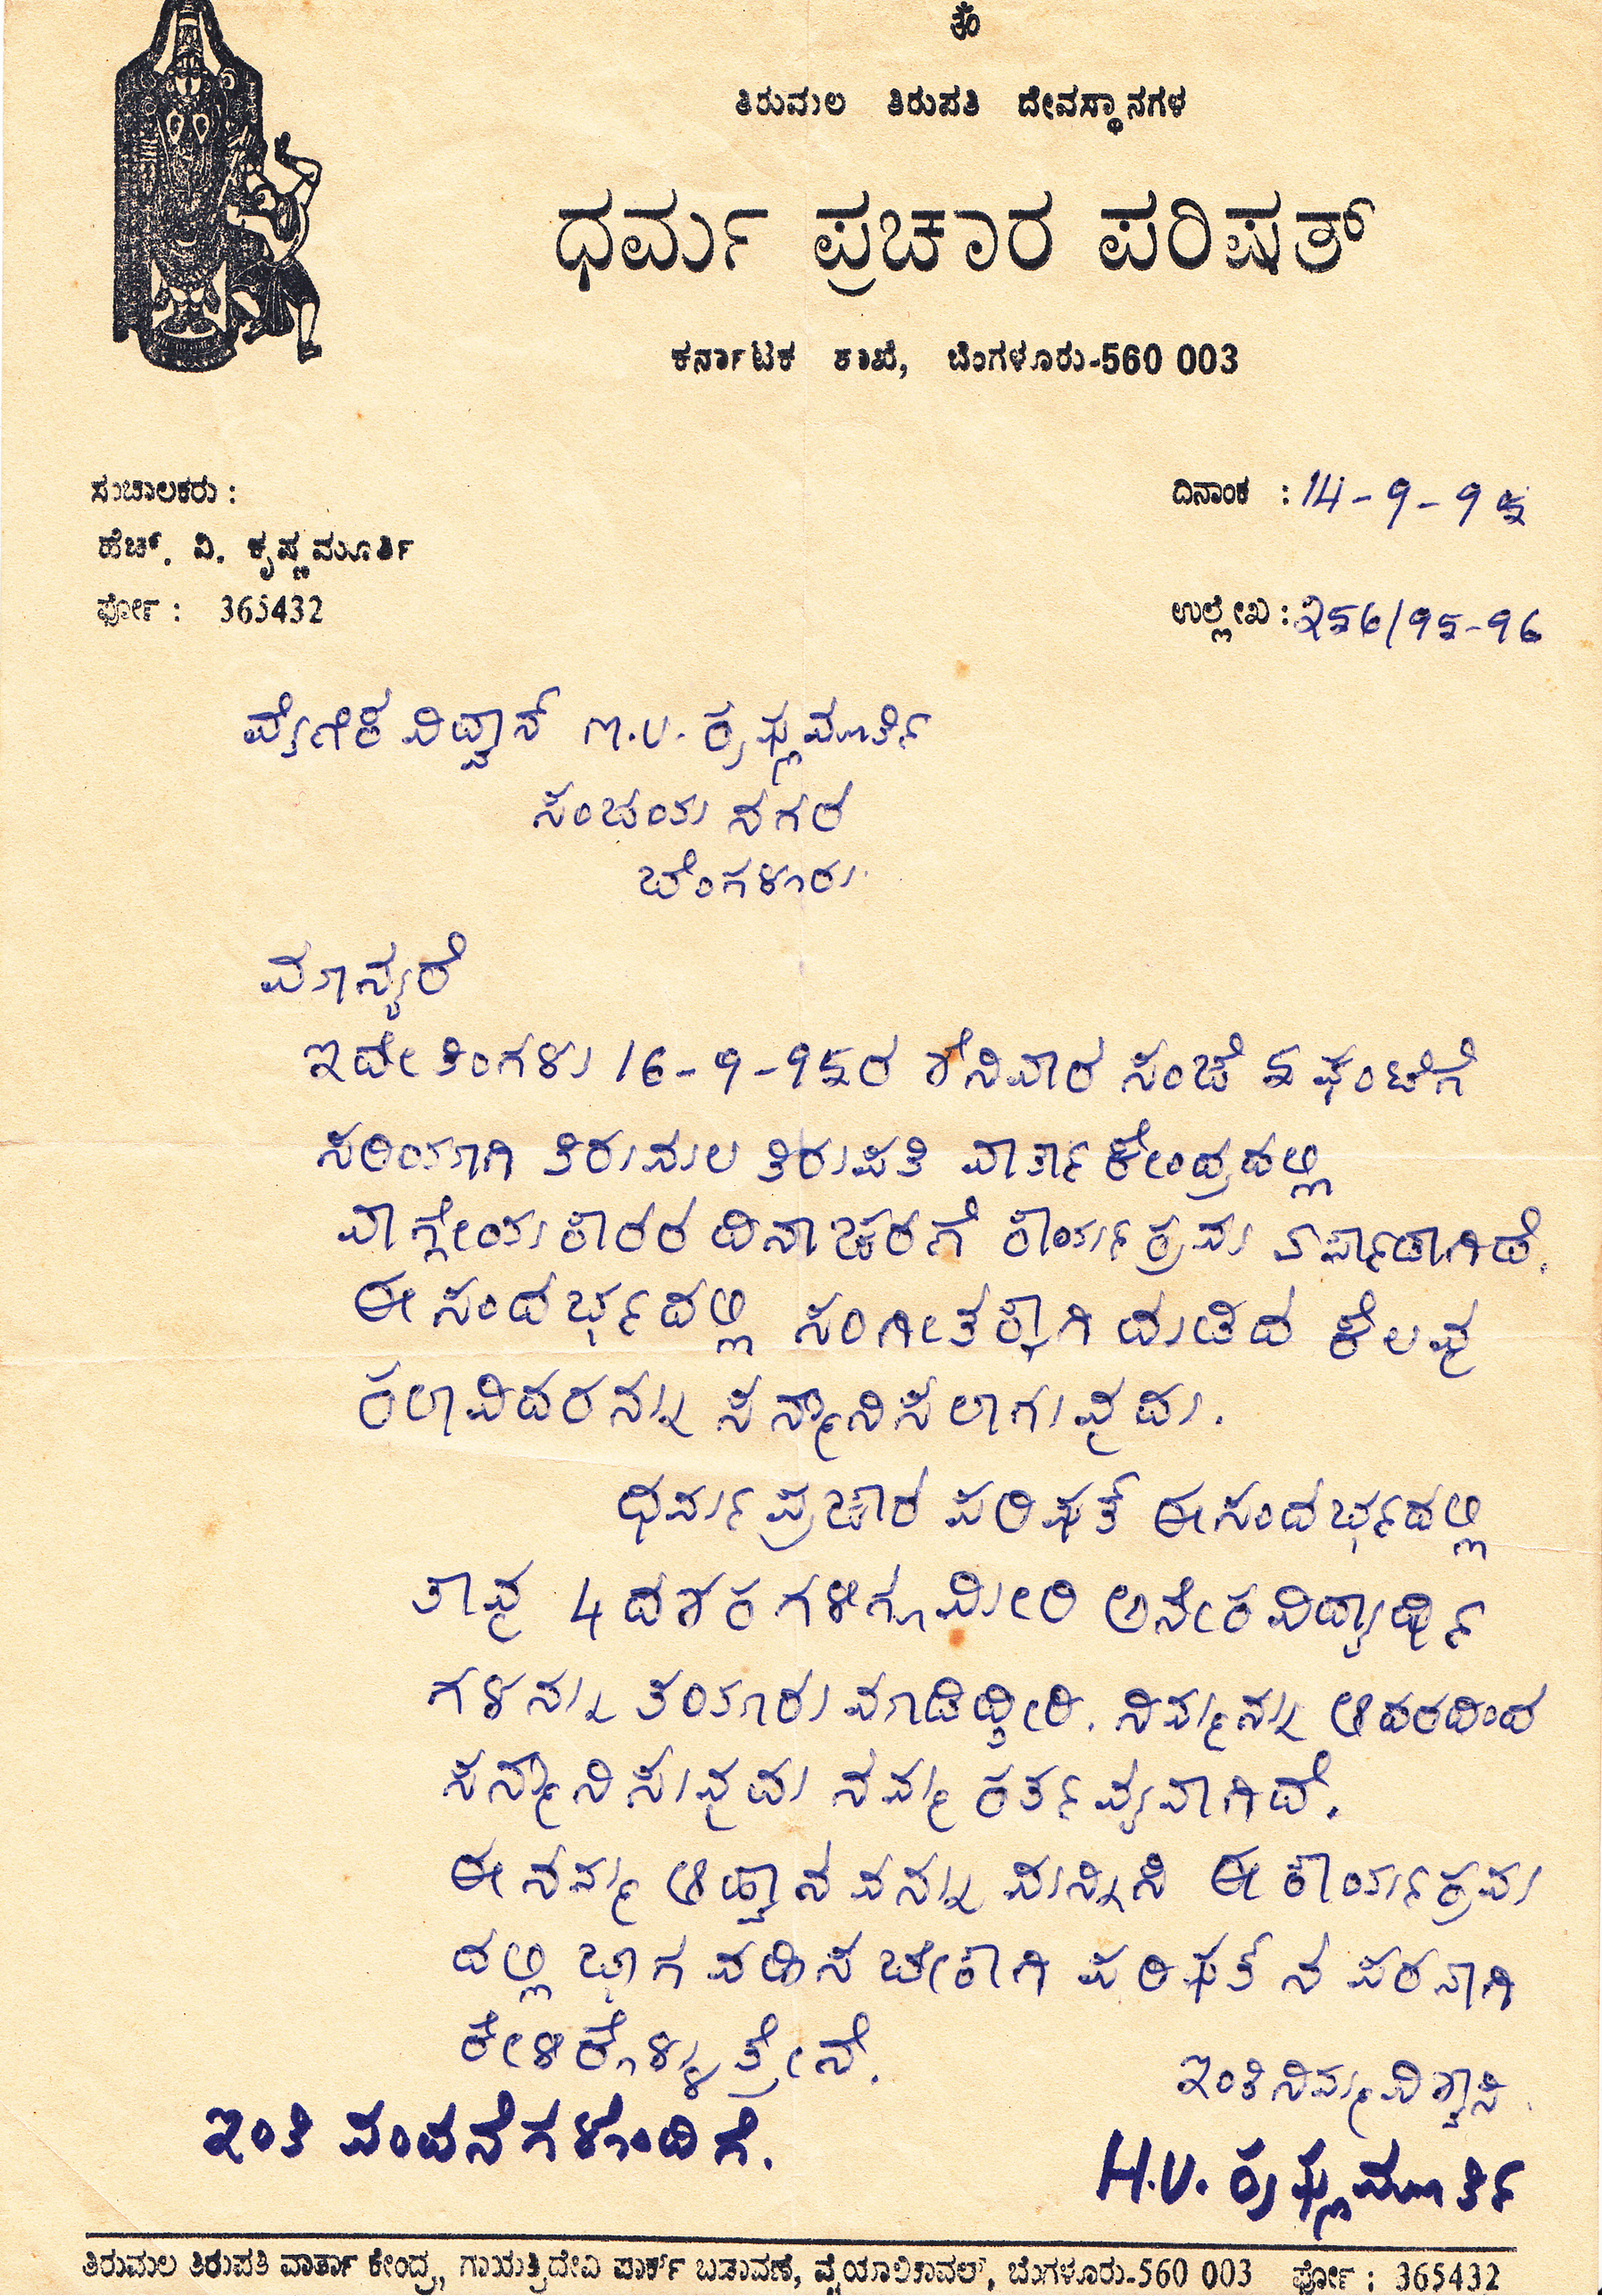 ಓಂ
ತಿರುಮಲ ತಿರುಪತಿ ದೇವಸ್ಥಾನಗಳ
ಧರ್ಮ ಪ್ರಚಾರ ಪರಿಷತ್
ಕರ್ನಾಟಕ ಶಾಖೆ, ಬೆಂಗಳೂರು-560 003
ಸಂಚಾಲಕರು :
ಹೆಚ್. ವಿ. ಕೃಷ್ಣಮೂರ್ತಿ
ಫೋ : 365432
ದಿನಾಂಕ : 14-9-95
ಉಲ್ಲೇಖ : 256/95-96
ವೈಣಿಕ ವಿದ್ವಾನ್ M.V. ಕೃಷ್ಣಮೂರ್ತಿ
ಸಂಜಯ ನಗರ
ಬೆಂಗಳೂರು.
ಮಾನ್ಯರೆ
ಇದೇ ತಿಂಗಳು 16-9-95ರ ಶನಿವಾರ ಸಂಜೆ 5 ಘಂಟೆಗೆ
ಸರಿಯಾಗಿ ತಿರುಮಲ ತಿರುಪತಿ ವಾರ್ತಾ ಕೇಂದ್ರದಲ್ಲಿ
ವಾಗ್ಗೇಯಕಾರರ ದಿನಾಚರಣೆ ಕಾರ್ಯಕ್ರಮ ಏರ್ಪಾಡಾಗಿದೆ.
ಈ ಸಂದರ್ಭದಲ್ಲಿ ಸಂಗೀತಕ್ಕಾಗಿ ದುಡಿದ ಕೆಲವು
ಕಲಾವಿದರನ್ನು ಸನ್ಮಾನಿಸಲಾಗುವುದು.
ಧರ್ಮ ಪ್ರಚಾರ ಪರಿಷತ್ ಈ ಸಂದರ್ಭದಲ್ಲಿ
ತಾವು 4 ದಶಕಗಳಿಗೂ ಮೀರಿ ಅನೇಕ ವಿದ್ಯಾರ್ಥಿ
ಗಳನ್ನು ತಯಾರು ಮಾಡಿದ್ದೀರಿ. ನಿಮ್ಮನ್ನು ಆದರದಿಂದ
ಸನ್ಮಾನಿಸುವುದು ನಮ್ಮ ಕರ್ತವ್ಯವಾಗಿದೆ.
ಈ ನಮ್ಮ ಆಹ್ವಾನವನ್ನು ಮನ್ನಿಸಿ ಈ ಕಾರ್ಯಕ್ರಮ
ದಲ್ಲಿ ಭಾಗವಹಿಸಬೇಕಾಗಿ ಪರಿಷತ್ ನ ಪರವಾಗಿ
ಕೇಳಿಕೊಳ್ಳುತ್ತೇನೆ.
ಇಂತಿ ನಿಮ್ಮ ವಿಶ್ವಾಸಿ.
ಇಂತಿ ವಂದನೆಗಳೊಂದಿಗೆ.
H.V. ಕೃಷ್ಣಮೂರ್ತಿ
ತಿರುಮಲ ತಿರುಪತಿ ವಾರ್ತಾ ಕೇಂದ್ರ, ಗಾಯತ್ರಿದೇವಿ ಪಾರ್ಕ್ ಬಡಾವಣೆ, ವೈಯಾಲಿಕಾವಲ್, ಬೆಂಗಳೂರು-560 003 ಫೋ : 365432